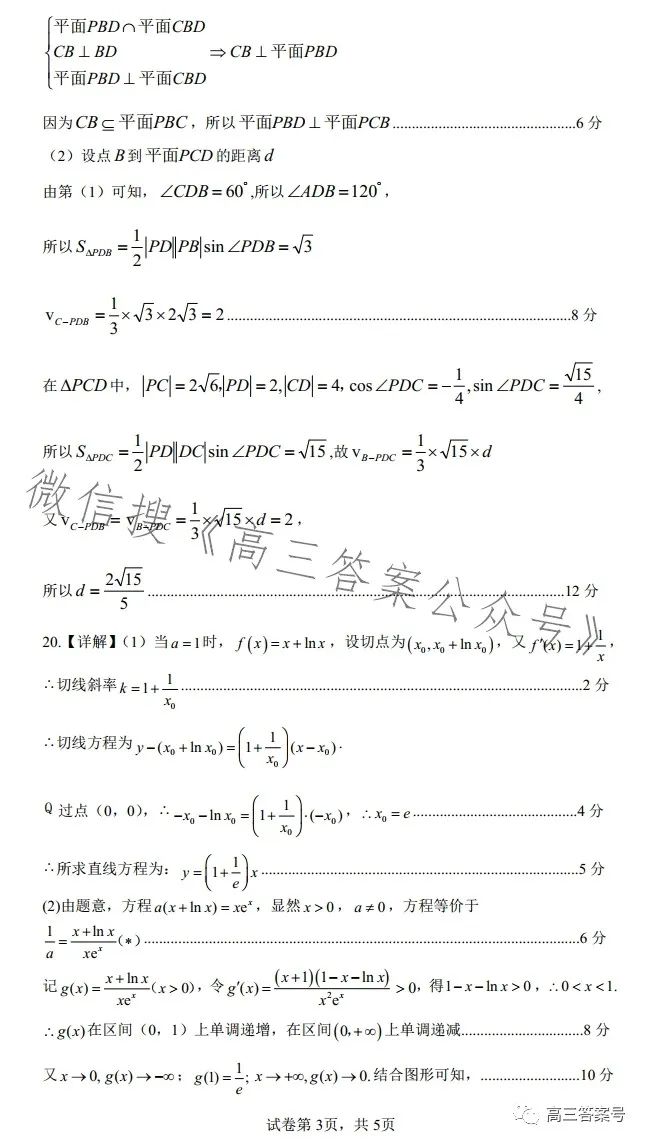 平面PBD∩平面CBD
CB⊥BD ⇒CB⊥平面PBD
平面PBD⊥平面CBD
因为CB⊆平面PBC，所以平面PBD⊥平面PCB..............................................6分
（2）设点B到平面PCD的距离d
由第（1）可知，∠CDB=60°,所以∠ADB=120°，
所以S_{ΔPDB}=\frac{1}{2}|PD||PB|sin∠PDB=√3
v_{C-PDB}=\frac{1}{3}×√3×2√3=2......................................................................................8分
在ΔPCD中，|PC|=2√6,|PD|=2,|CD|=4，cos∠PDC=-\frac{1}{4},sin∠PDC=\frac{√15}{4},
所以S_{ΔPDC}=\frac{1}{2}|PD||DC|sin∠PDC=√15,故v_{B-PDC}=\frac{1}{3}×√15×d
又v_{C-PDB}=v_{B-PDC}=\frac{1}{3}×√15×d=2，
所以d=\frac{2√15}{5}........................................................................................................12分
20.【详解】（1）当a=1时，f(x)=x+lnx，设切点为(x₀,x₀+lnx₀)，又f′(x)=1+\frac{1}{x}，
∴切线斜率k=1+\frac{1}{x₀}....................................................................................................2分
∴切线方程为y-(x₀+lnx₀)=(1+\frac{1}{x₀})(x-x₀).
Q过点（0，0），∴-x₀-lnx₀=(1+\frac{1}{x₀})·(-x₀)，∴x₀=e.........................................4分
∴所求直线方程为：y=(1+\frac{1}{e})x................................................................................5分
(2)由题意，方程a(x+lnx)=xeˣ，显然x>0，a≠0，方程等价于
\frac{1}{a}=\frac{x+lnx}{xeˣ}(*).............................................................................................................6分
记g(x)=\frac{x+lnx}{xeˣ}(x>0)，令g′(x)=\frac{(x+1)(1-x-lnx)}{x²eˣ}>0,得1-x-lnx>0，∴0<x<1.
∴g(x)在区间（0，1）上单调递增，在区间(0,+∞)上单调递减...............................8分
又x→0,g(x)→-∞；g(1)=\frac{1}{e};x→+∞,g(x)→0.结合图形可知，.........................10分
试卷第3页，共5页
微信搜《高三答案公众号》
高三答案号